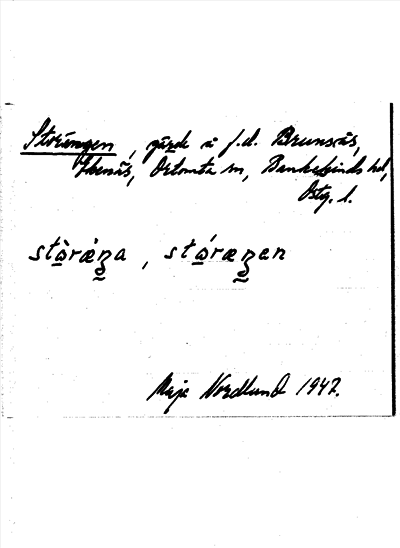 Storängen, gärde å f.d. Brunsnäs,
Ekenäs, Örtomta sn, Bankekinds hd,
Östg. l.
stɷ̀ráŋa, stɷ́ræŋen
Maja Nordlund 1947.